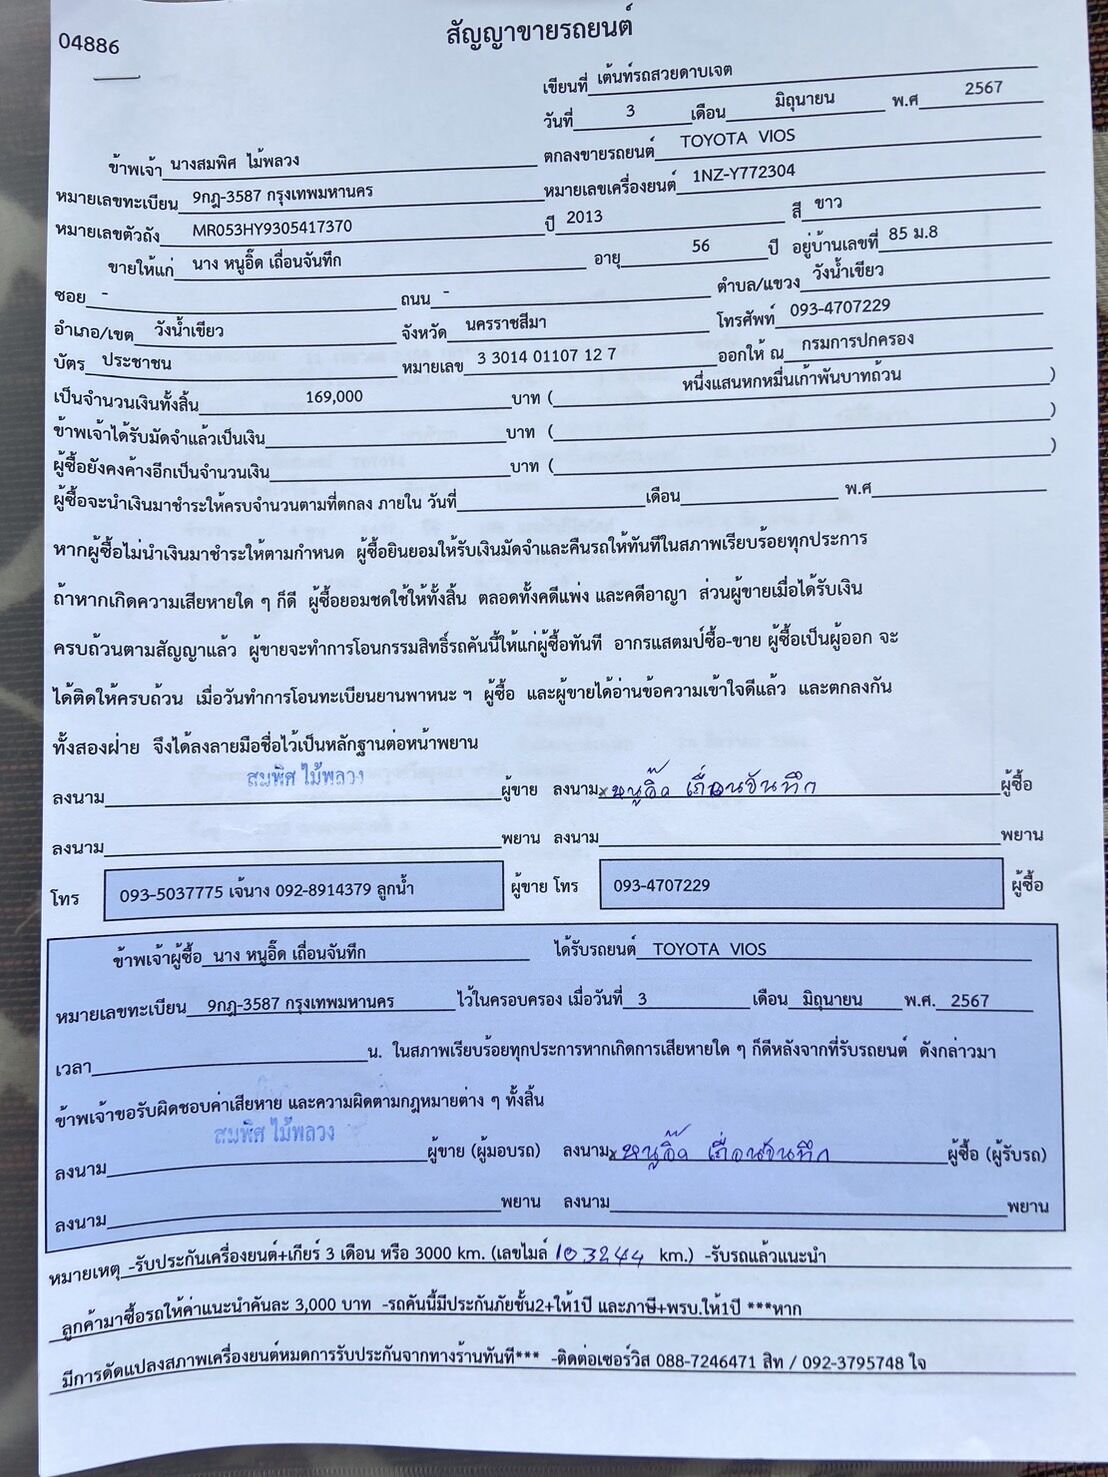 04886
สัญญาขายรถยนต์
เขียนที่ เต้นท์รถสวยดาบเจต
วันที่ 3 เดือน มิถุนายน พ.ศ 2567
ข้าพเจ้า นางสมพิศ ไม้พลวง ตกลงขายรถยนต์ TOYOTA VIOS
หมายเลขทะเบียน 9กฎ-3587 กรุงเทพมหานคร หมายเลขเครื่องยนต์ 1NZ-Y772304
หมายเลขตัวถัง MR053HY9305417370 ปี 2013 สี ขาว
ขายให้แก่ นาง หนูอิ๊ด เถื่อนจันทึก อายุ 56 ปี อยู่บ้านเลขที่ 85 ม.8
ซอย - ถนน - ตำบล/แขวง วังน้ำเขียว
อำเภอ/เขต วังน้ำเขียว จังหวัด นครราชสีมา โทรศัพท์ 093-4707229
บัตร ประชาชน หมายเลข 3 3014 01107 12 7 ออกให้ ณ กรมการปกครอง
เป็นจำนวนเงินทั้งสิ้น 169,000 บาท ( หนึ่งแสนหกหมื่นเก้าพันบาทถ้วน )
ข้าพเจ้าได้รับมัดจำแล้วเป็นเงิน บาท ( )
ผู้ซื้อยังคงค้างอีกเป็นจำนวนเงิน บาท ( )
ผู้ซื้อจะนำเงินมาชำระให้ครบจำนวนตามที่ตกลง ภายใน วันที่ เดือน พ.ศ
หากผู้ซื้อไม่นำเงินมาชำระให้ตามกำหนด ผู้ซื้อยินยอมให้รับเงินมัดจำและคืนรถให้ทันทีในสภาพเรียบร้อยทุกประการ
ถ้าหากเกิดความเสียหายใด ๆ ก็ดี ผู้ซื้อยอมชดใช้ให้ทั้งสิ้น ตลอดทั้งคดีแพ่ง และคดีอาญา ส่วนผู้ขายเมื่อได้รับเงิน
ครบถ้วนตามสัญญาแล้ว ผู้ขายจะทำการโอนกรรมสิทธิ์รถคันนี้ให้แก่ผู้ซื้อทันที อากรแสตมป์ซื้อ-ขาย ผู้ซื้อเป็นผู้ออก จะ
ได้ติดให้ครบถ้วน เมื่อวันทำการโอนทะเบียนยานพาหนะ ฯ ผู้ซื้อ และผู้ขายได้อ่านข้อความเข้าใจดีแล้ว และตกลงกัน
ทั้งสองฝ่าย จึงได้ลงลายมือชื่อไว้เป็นหลักฐานต่อหน้าพยาน
ลงนาม สมพิศ ไม้พลวง ผู้ขาย ลงนาม x หนูอิ๊ด เถื่อนจันทึก ผู้ซื้อ
ลงนาม พยาน ลงนาม พยาน
โทร 093-5037775 เจ้นาง 092-8914379 ลูกน้ำ ผู้ขาย โทร 093-4707229 ผู้ซื้อ
ข้าพเจ้าผู้ซื้อ นาง หนูอิ๊ด เถื่อนจันทึก ได้รับรถยนต์ TOYOTA VIOS
หมายเลขทะเบียน 9กฎ-3587 กรุงเทพมหานคร ไว้ในครอบครอง เมื่อวันที่ 3 เดือน มิถุนายน พ.ศ. 2567
เวลา น. ในสภาพเรียบร้อยทุกประการหากเกิดการเสียหายใด ๆ ก็ดีหลังจากที่รับรถยนต์ ดังกล่าวมา
ข้าพเจ้าขอรับผิดชอบค่าเสียหาย และความผิดตามกฎหมายต่าง ๆ ทั้งสิ้น
ลงนาม สมพิศ ไม้พลวง ผู้ขาย (ผู้มอบรถ) ลงนาม x หนูอิ๊ด เถื่อนจันทึก ผู้ซื้อ (ผู้รับรถ)
ลงนาม พยาน ลงนาม พยาน
หมายเหตุ -รับประกันเครื่องยนต์+เกียร์ 3 เดือน หรือ 3000 km. (เลขไมล์ 103244 km.) -รับรถแล้วแนะนำ
ลูกค้ามาซื้อรถให้ค่าแนะนำคันละ 3,000 บาท -รถคันนี้มีประกันภัยชั้น2+ให้1ปี และภาษี+พรบ.ให้1ปี ***หาก
มีการดัดแปลงสภาพเครื่องยนต์หมดการรับประกันจากทางร้านทันที*** -ติดต่อเซอร์วิส 088-7246471 สิท / 092-3795748 ใจ